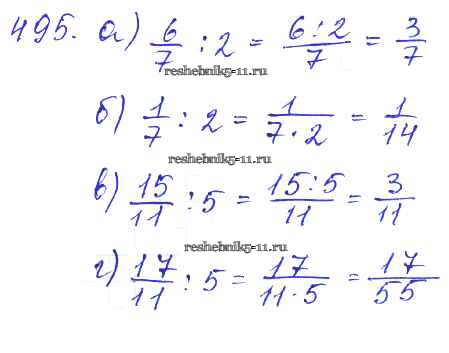 495. а) 6/7 : 2 = 6:2/7 = 3/7
reshebnik5-11.ru
б) 1/7 : 2 = 1/7·2 = 1/14
reshebnik5-11.ru
в) 15/11 : 5 = 15:5/11 = 3/11
reshebnik5-11.ru
г) 17/11 : 5 = 17/11·5 = 17/55